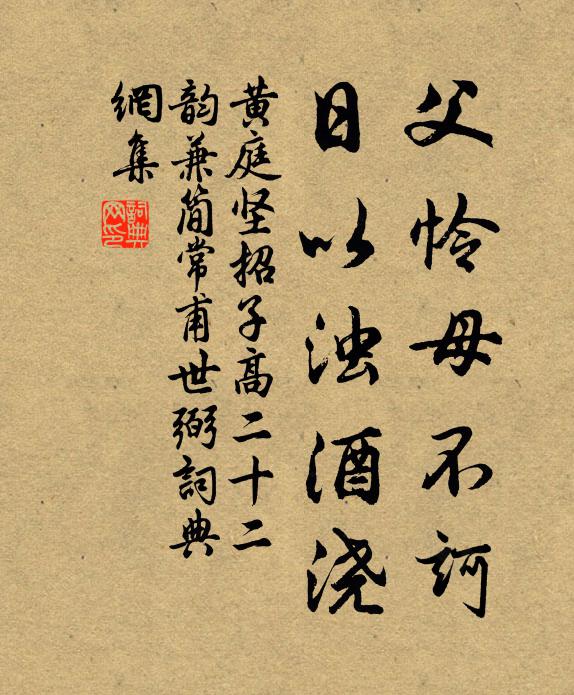 父怜母不訶
日以浊酒浇
黄庭坚招子高二十二
韵兼简常甫世弼詞典
網集
詞典
网印